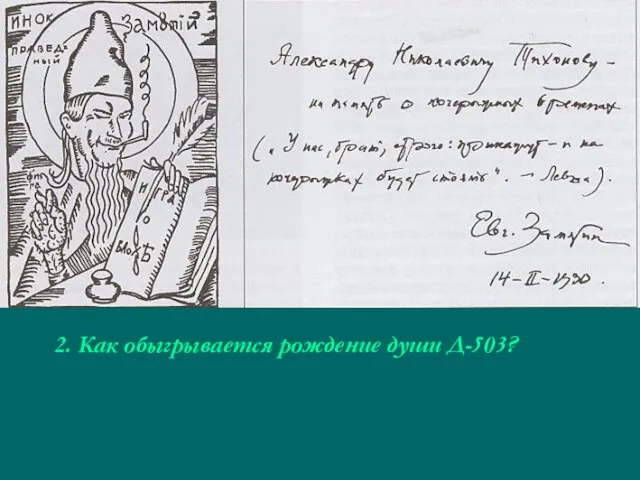 ИНОК
ЗАМУТІЙ
ПРАВЕД=
НЫЙ
ИГРА
О
БЛОХѢ
Александру Николаевичу Тихонову –
на память о
(„У нас, брат, строго: прикажут – и на
будет стоять“. – Левша).
Евг. Замятин
14–II–1930.
2. Как обыгрывается рождение души Д-503?